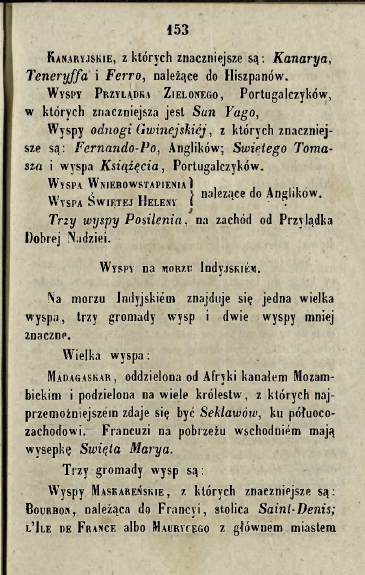 153
Kanaryjskie, z których znaczniejsze są: Kanarya,
Teneryffa i Ferro, należące do Hiszpanów.
Wyspy Przylądka Zielonego, Portugalczyków,
w których znaczniejsza jest San Yago,
Wyspy odnogi Gwinejskiéj, z których znaczniej-
sze są: Fernando-Po, Anglików; Swietego Toma-
sza i wyspa Książęcia, Portugalczyków.
Wyspa Wniebowstapienia }
Wyspa Świętej Heleny } nalezące do Anglików.
Trzy wyspy Posilenia, na zachód od Przylądka
Dobrej Nadziei.
Wyspy na morzu Indyjskiém.
Na morzu Indyjskiém znajduje się jedna wielka
wyspa, trzy gromady wysp i dwie wyspy mniej
znaczne.
Wielka wyspa:
Madagaskar, oddzielona od Afryki kanałem Mozam-
bickim i podzielona na wiele królestw, z których naj-
przemożniejszém zdaje się być Seklawów, ku półuoco-
zachodowi. Francuzi na pobrzeżu wschodniém mają
wysepkę Swięta Marya.
Trzy gromady wysp są:
Wyspy Maskareńskie, z których znaczniejsze są:
Bourbon, należąca do Francyi, stolica Saint-Denis;
l'Ile de France albo Maurycego z główném miastem